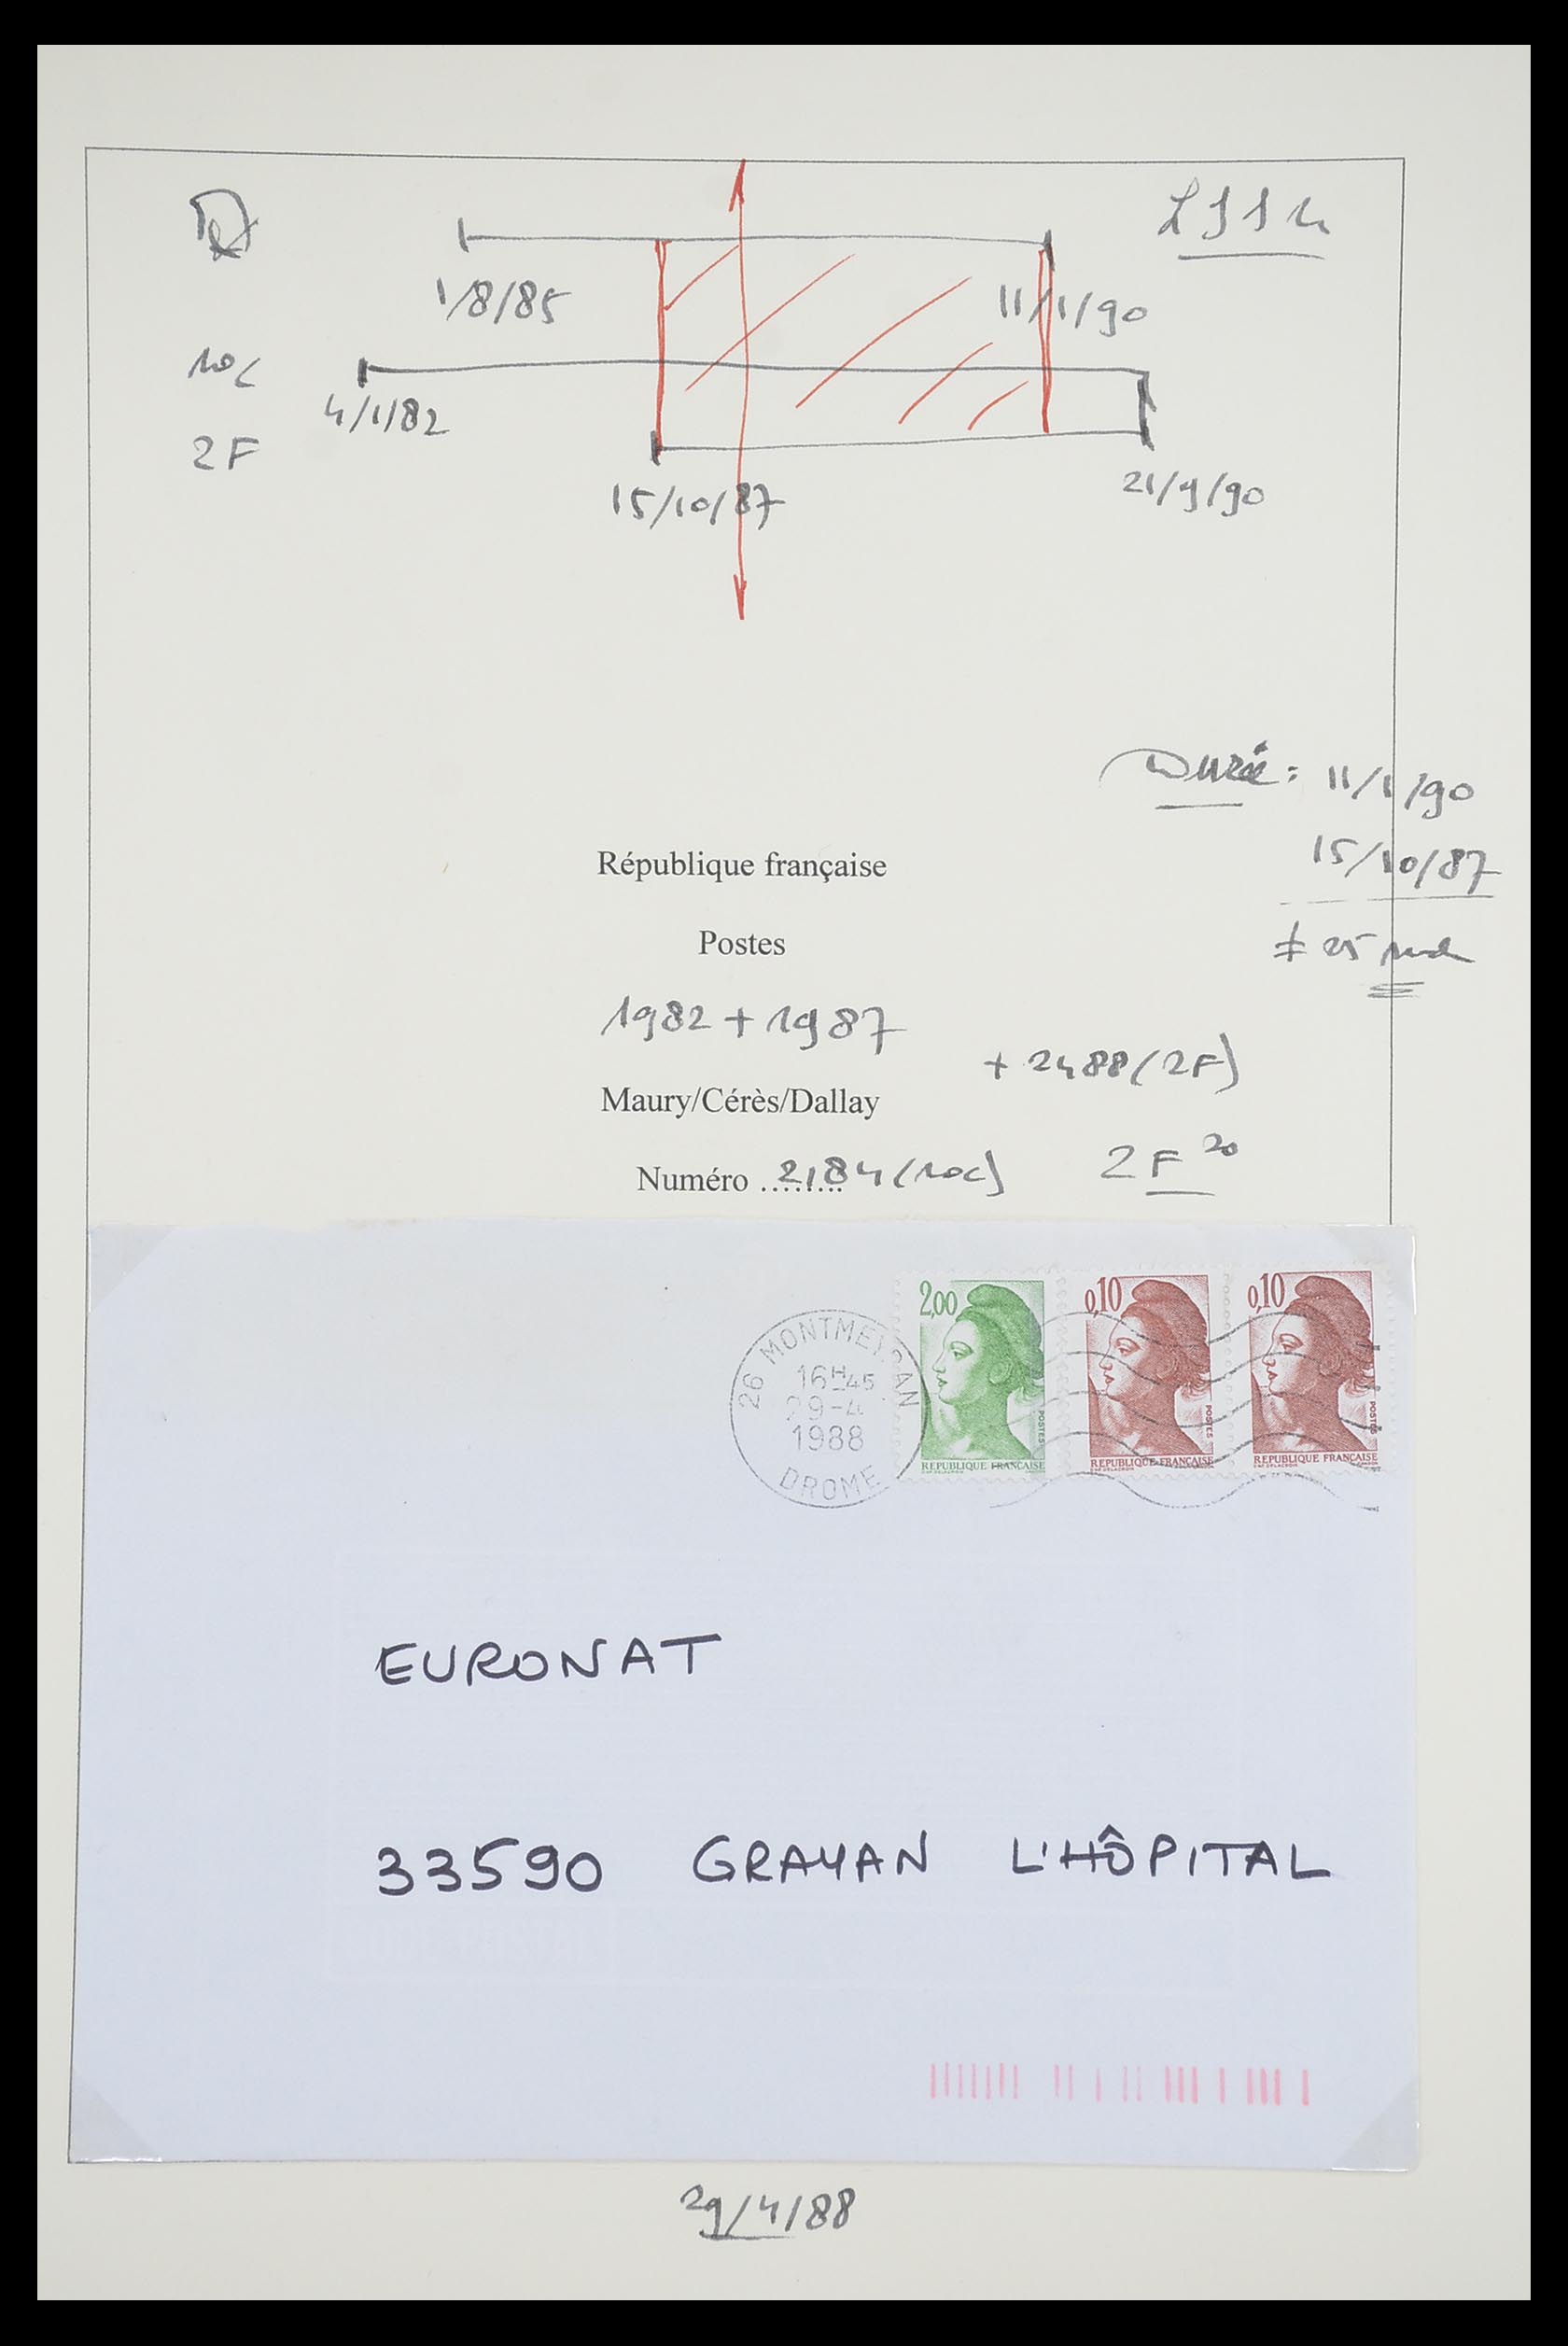 1/8/85
11/1/90
10c
4/1/82
2F
15/10/87
21/9/90
Durée : 11/1/90
15/10/87
République française
Postes
1982 + 1987
+ 2488 (2F)
Maury/Cérès/Dallay
Numéro ........ 2184 (10c)
2F 20
2,00
0,10
0,10
POSTES
POSTES
POSTES
REPUBLIQUE FRANÇAISE
REPUBLIQUE FRANÇAISE
REPUBLIQUE FRANÇAISE
26 MONTMEYRAN
16H45
29-4
1988
DROME
EURONAT
33590 GRAYAN L'HÔPITAL
29/4/88